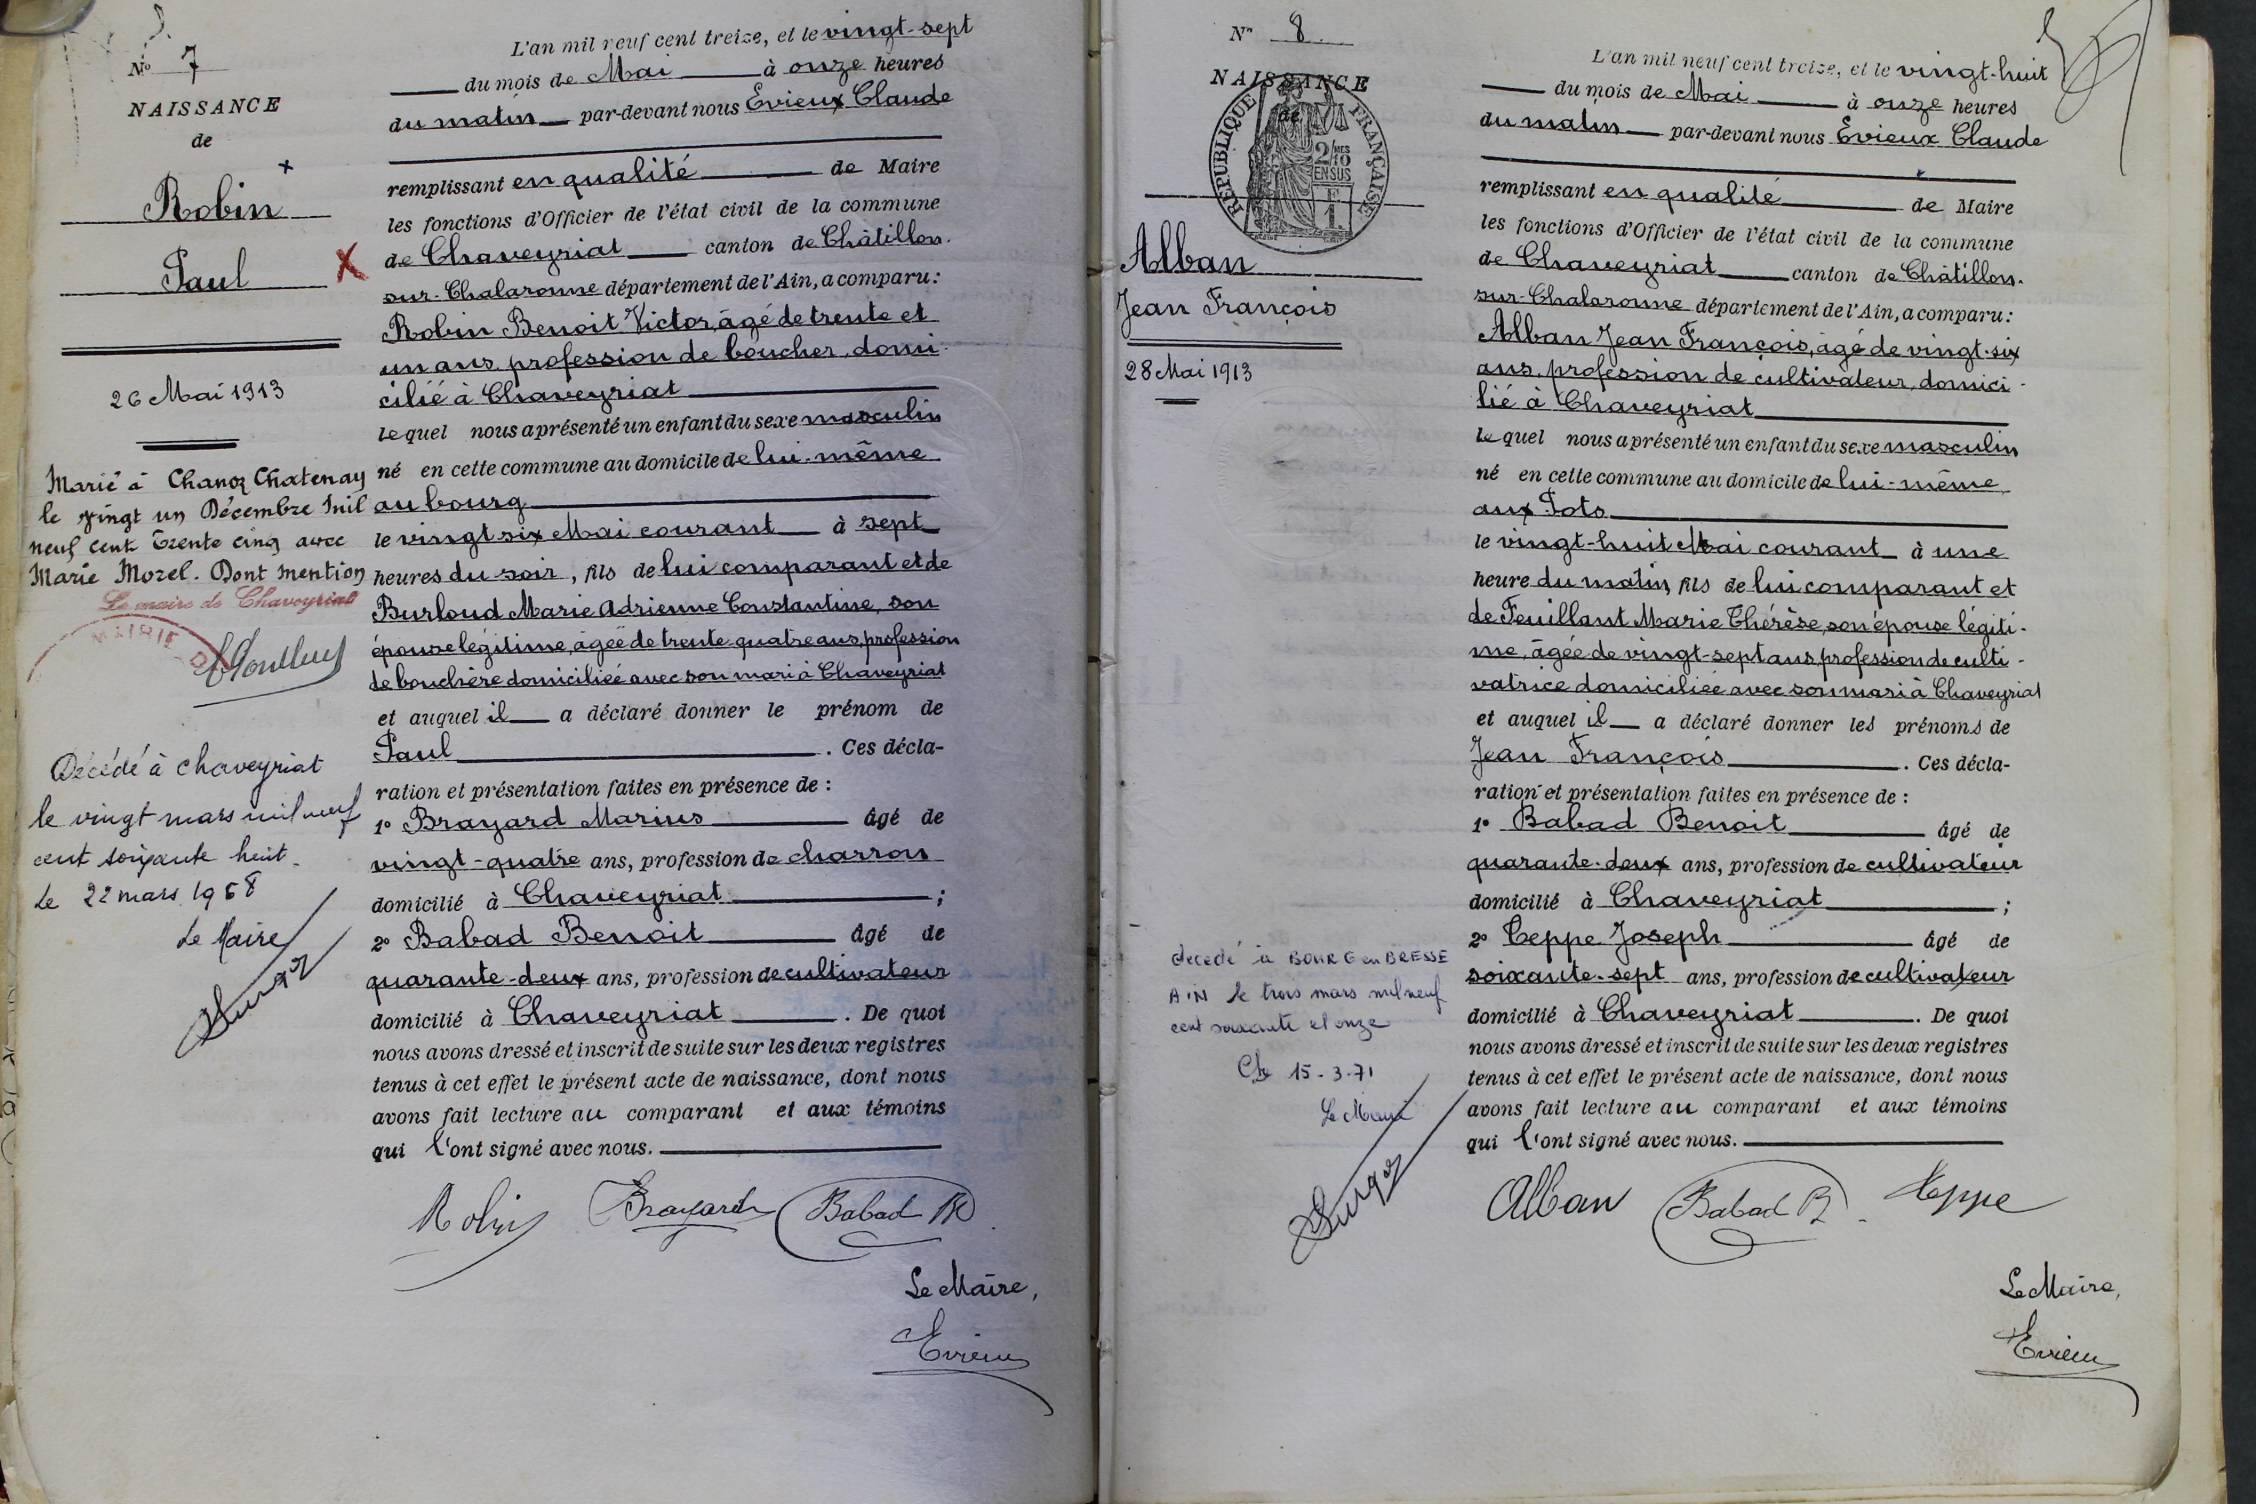 N° 7
NAISSANCE
de
Robin
Paul
26 Mai 1913
Marié à Chanoz Chatenay
le vingt un Décembre Mil
neuf cent Trente cinq avec
Marie Morel. Dont mention
Le maire de Chaveyriat
MAIRIE D
Décédé à Chaveyriat
le vingt mars mil neuf
cent soixante huit.
Le 22 mars 1968
Le Maire
L'an mil neuf cent treize, et le vingt-sept
du mois de Mai à onze heures
du matin par-devant nous Evieux Claude
remplissant en qualité de Maire
les fonctions d'Officier de l'état civil de la commune
de Chaveyriat canton de Châtillon-
sur-Chalaronne département de l'Ain, a comparu:
Robin Benoit Victor, âgé de trente et
un ans, profession de boucher, domi-
cilié à Chaveyriat
lequel nous a présenté un enfant du sexe masculin
né en cette commune au domicile de lui-même
au bourg
le vingt six Mai courant à sept
heures du soir, fils de lui comparant et de
Burloud Marie Adrienne Constantine, son
épouse légitime, âgée de trente quatre ans, profession
de bouchère domiciliée avec son mari à Chaveyriat
et auquel il a déclaré donner le prénom de
Paul . Ces décla-
ration et présentation faites en présence de :
1° Brayard Marius âgé de
vingt-quatre ans, profession de charron
domicilié à Chaveyriat ;
2° Babad Benoit âgé de
quarante-deux ans, profession de cultivateur
domicilié à Chaveyriat . De quoi
nous avons dressé et inscrit de suite sur les deux registres
tenus à cet effet le présent acte de naissance, dont nous
avons fait lecture au comparant et aux témoins
qui l'ont signé avec nous.
Robin Brayard Babad B
Le Maire,
Evieux
N° 8
NAISSANCE
de
RÉPUBLIQUE FRANÇAISE
2/10 MES
EN SUS
F
1.
Alban
Jean François
28 Mai 1913
décédé à BOURG en BRESSE
AIN le trois mars mil neuf
cent soixante et onze
15-3-71
Le Maire
L'an mil neuf cent treize, et le vingt-huit
du mois de Mai à onze heures
du matin par-devant nous Evieux Claude
remplissant en qualité de Maire
les fonctions d'Officier de l'état civil de la commune
de Chaveyriat canton de Châtillon-
sur-Chalaronne département de l'Ain, a comparu:
Alban Jean François, âgé de vingt-six
ans, profession de cultivateur, domici-
lié à Chaveyriat
lequel nous a présenté un enfant du sexe masculin
né en cette commune au domicile de lui-même
aux Tots
le vingt-huit Mai courant à une
heure du matin, fils de lui comparant et
de Feuillant Marie Thérèse, son épouse légiti-
me, âgée de vingt-sept ans, profession de culti-
vatrice domiciliée avec son mari à Chaveyriat
et auquel il a déclaré donner les prénoms de
Jean François . Ces décla-
ration et présentation faites en présence de :
1° Babad Benoit âgé de
quarante-deux ans, profession de cultivateur
domicilié à Chaveyriat ;
2° Teppe Joseph âgé de
soixante-sept ans, profession de cultivateur
domicilié à Chaveyriat . De quoi
nous avons dressé et inscrit de suite sur les deux registres
tenus à cet effet le présent acte de naissance, dont nous
avons fait lecture au comparant et aux témoins
qui l'ont signé avec nous.
Alban Babad B. Teppe
Le Maire,
Evieux